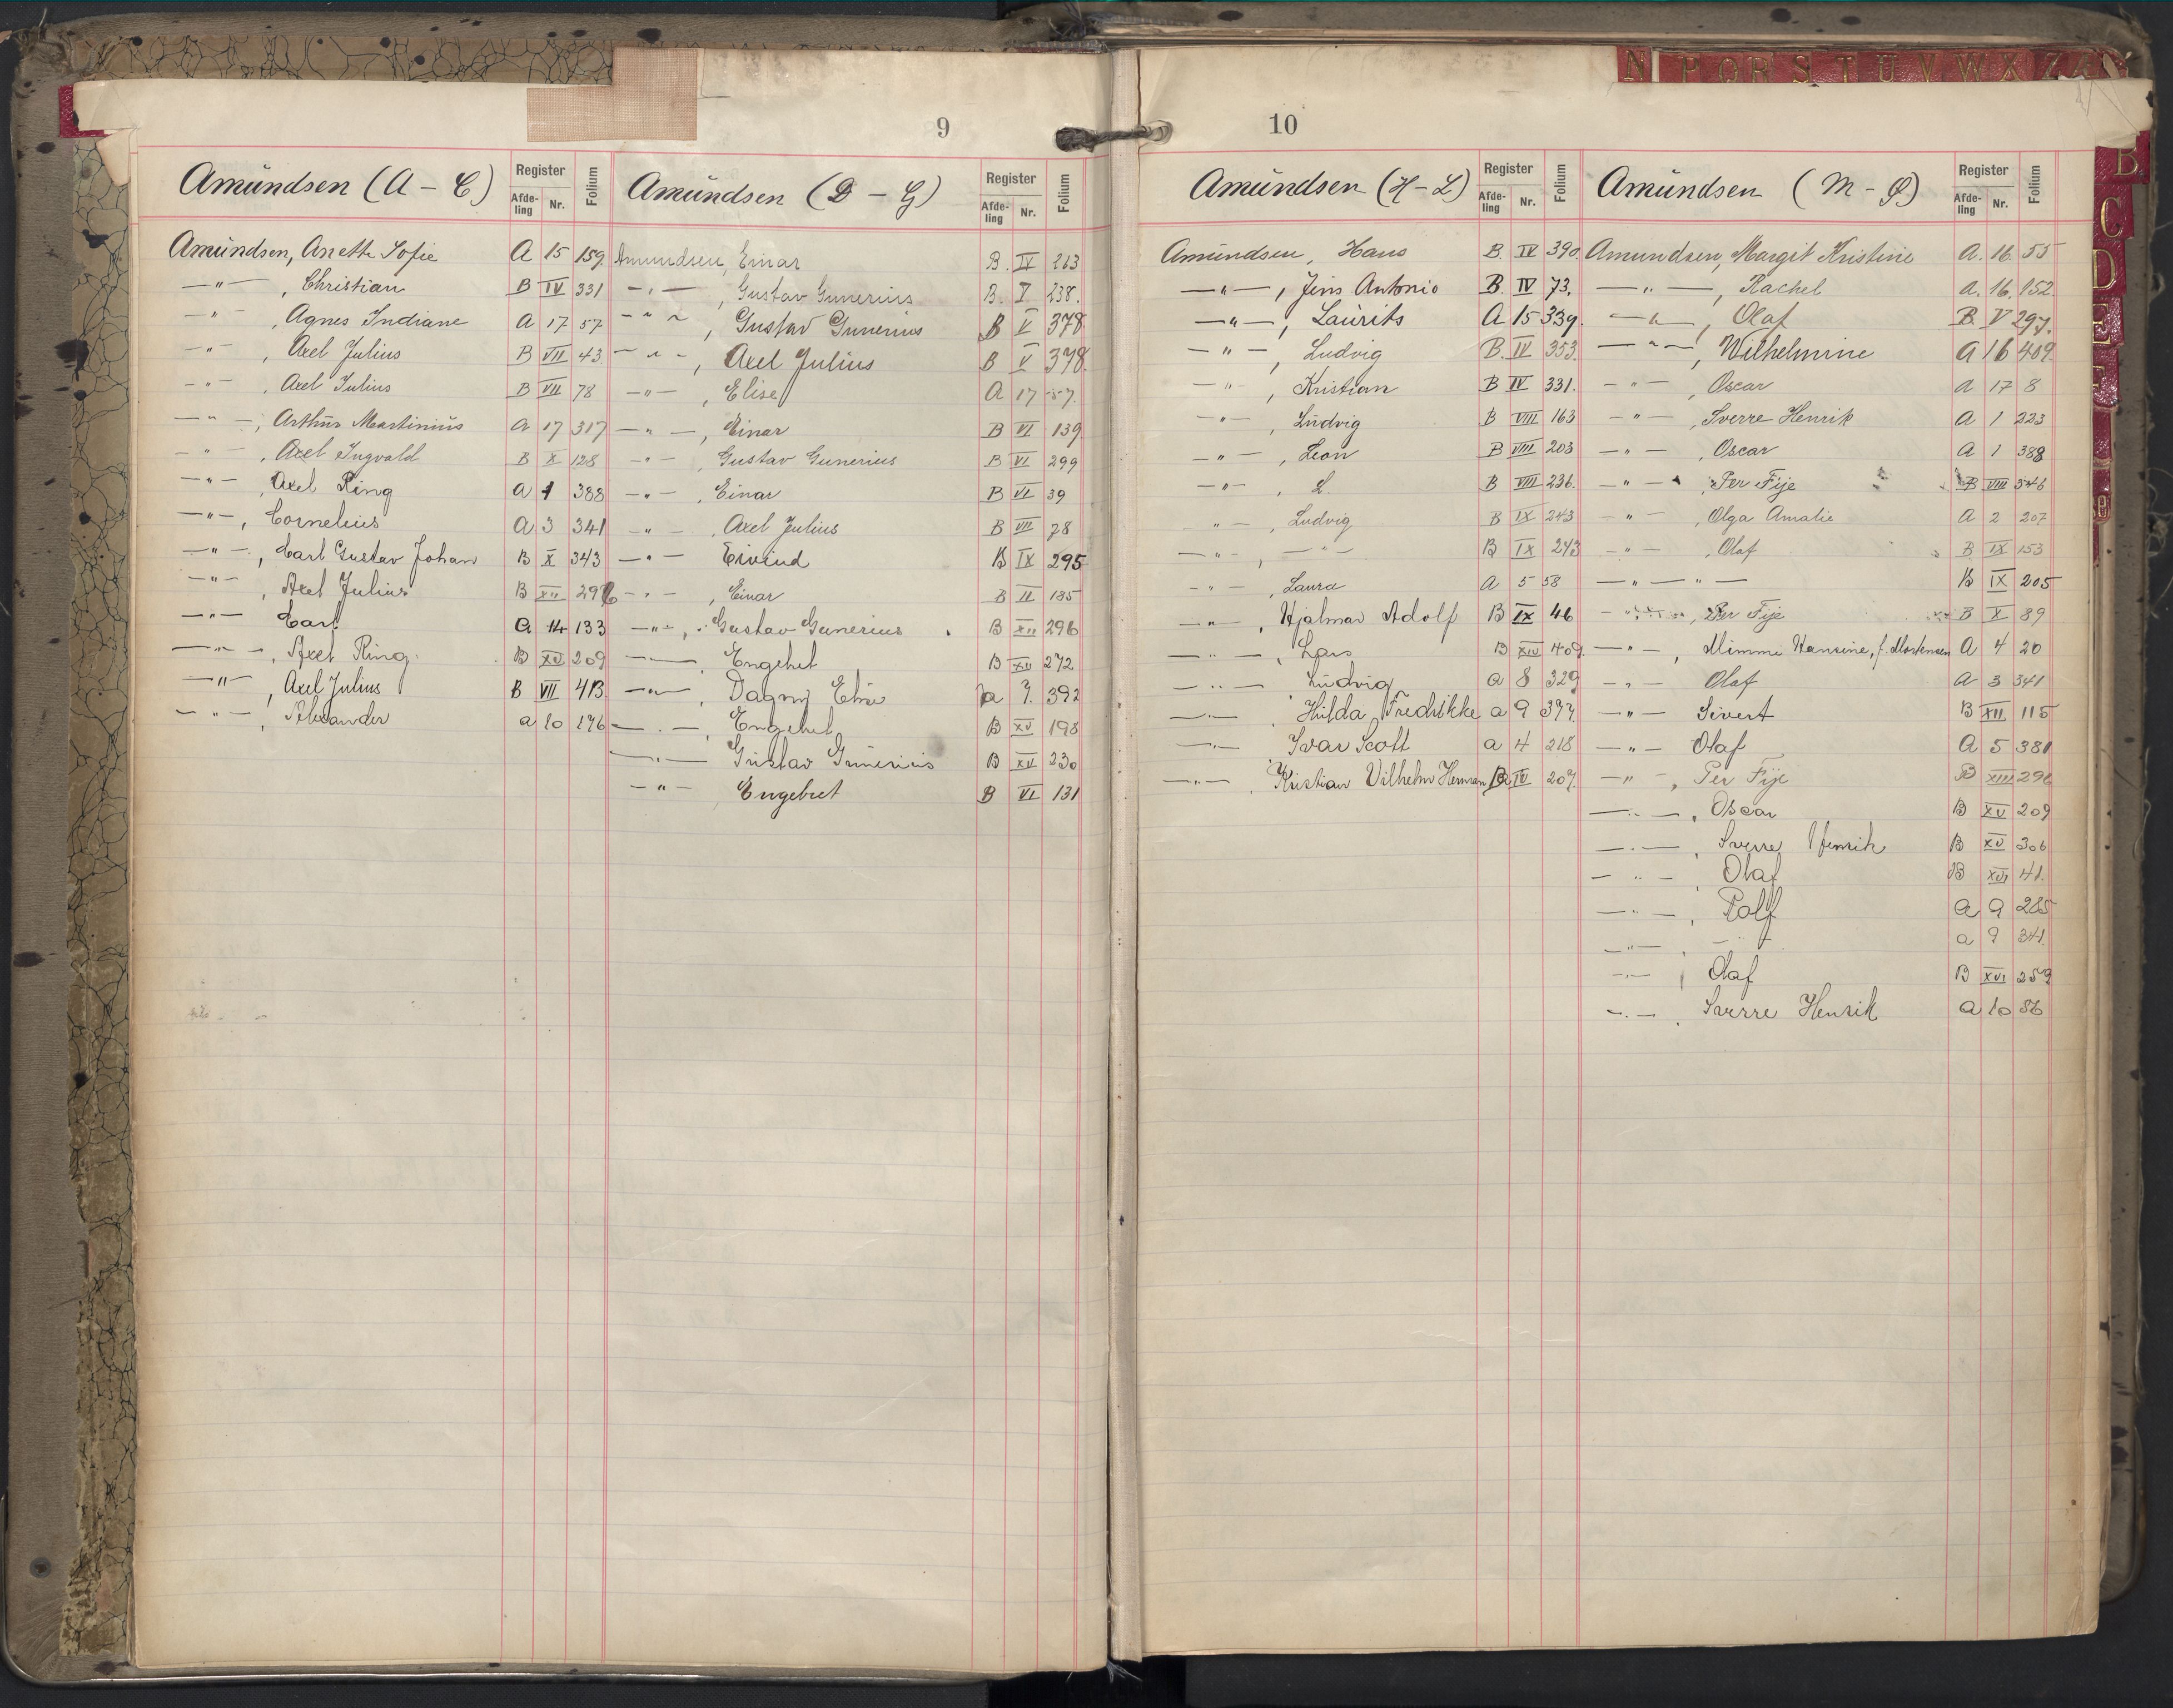 N P Q R S T U V W X Z Æ
9
Amundsen (A – C) Register Afdeling Nr. Folium
Amundsen, Anette Sofie A 15 159
—"— , Christian B IV 331
—"— , Agnes Indiane A 17 57
—"— , Axel Julius B VII 43
—"— , Axel Julius B VII 78
—"— , Arthur Martinius A 17 317
—"— , Axel Ingvald B X 128
—"— , Axel Ring A 1 388
—"— , Cornelius A 3 341
—"— , Carl Gustav Johan B X 343
—"— , Axel Julius B XII 296
—"— Carl A 14 133
—"— , Axel Ring B XV 209
—"— , Axel Julius B VII 413
—"— , Alexander a 10 176
Amundsen (D – G) Register Afdeling Nr. Folium
Amundsen, Einar B. IV 263
—"— , Gustav Gunerius B. V 238.
—"— , Gustav Gunerius B V 378
—"— , Axel Julius B V 378.
—"— , Elise A 17 57.
—"— , Einar B VI 139
—"— , Gustav Gunerius B VI 299
—"— , Einar B VI 39
—"— , Axel Julius B VII 78
—"— Eivind B IX 295
—"— , Einar B II 185
—"— , Gustav Gunerius B XII 296
—"— , Engebet B XII 272
—"— , Dagny Elise a 7. 392
—"— , Engebret B XV 198
—"— Gustav Gunerius B XV 230
—"— Engebret B VI 131
10
Amundsen (H – L) Register Afdeling Nr. Folium
Amundsen, Hans B. IV 390.
—"— , Jens Antonio B. IV 73.
—"— , Laurits A 15 339.
—"— , Ludvig B. IV 353.
—"— , Kristian B IV 331.
—"— , Ludvig B VIII 163
—"— , Leon B VIII 203
—"— , L. B VIII 236.
—"— , Ludvig B IX 243
—"— , —"— B IX 243
—"— , Laura A 5 58
—"— , Hjalmar Adolf B IX 46
—"— , Lars B XIV 409.
—"— Ludvig a 8 329
—"— , Hilda Fredrikke a 9 377.
—"— Ivar Scott a 4 218
—"— , Kristian Vilhelm Hemsen B IV 207.
Amundsen (M – Q) Register Afdeling Nr. Folium
Amundsen, Margit Kristine A. 16. 55
—"— , Rachel A. 16. 152
—"— , Olaf B. V 297.
—"— , Wilhelmine A 16 409.
—"— , Oscar A 17 8
—"— , Sverre Henrik A 1 223
—"— , Oscar A 1 388
—"— , Per Fije B VIII 346
—"— , Olga Amalie A 2 207
—"— , Olaf B IX 153
—"— —"— B IX 205
—"— , Per Fije B X 89
—"— , Mimmi Hansine, f. Mortensen A 4 20
—"— Olaf A 3 341
—"— Sivert B XII 115
—"— Olaf A 5 381
—"— , Per Fije B XIII 296
—"— , Oscar B XV 209
—"— , Sverre Henrik B XV 306
—"— , Olaf B XVI 41.
—"— , Rolf a 9 285
—"— , —"— a 9 341.
—"— , Olaf B XVI 259
—"— , Sverre Henrik a 10 86
B
C
D
E
F